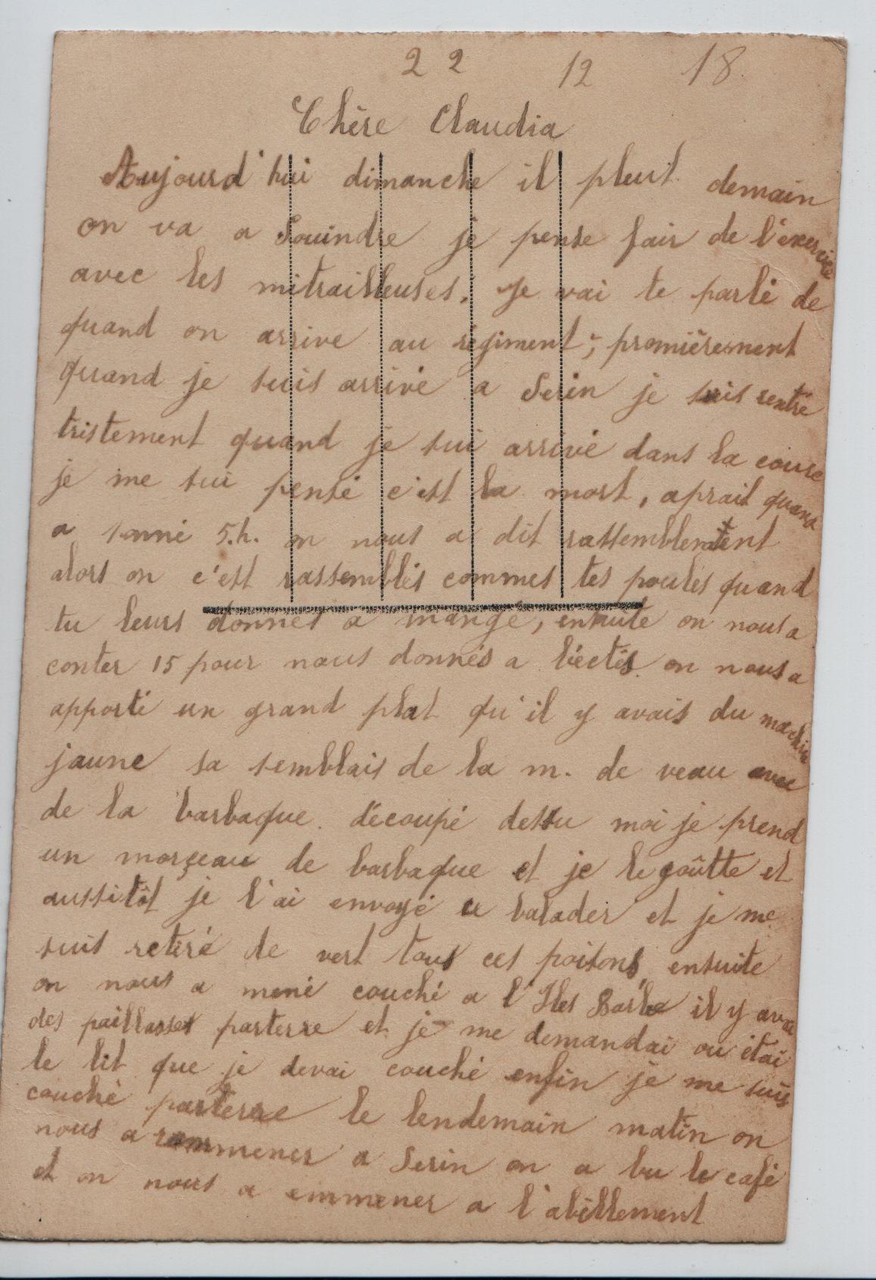 22 12 18
Chère Claudia
Aujourd'hui dimanche il pleut demain
on va a Souindre je pense fair de l'exercice
avec les mitrailleuses. Je vai te parlé de
quand on arrive au régiment; promièrement
quand je suis arrivé a Serin je suis rentré
tristement quand je sui arrivé dans la course
je me sui pensé c'est la mort, aprait quand
a sonné 5.h. on nous a dit rassemblement
alors on c'est rassemblés commes tes poules quand
tu leurs donnes a mangé, ensuite on nous a
conter 15 pour nous donnés a béctés on nous a
apporté un grand plat qu'il y avais du
jaune sa semblais de la m. de veau avec
de la barbaque découpé dessu moi je prend
un morçeau de barbaque et je le goûtte et
aussitôt je l'ai envoyé a balader et je me
suis retiré de vert tous ces poisons, ensuite
on nous a mené couché a l'Iles Barbe il y avai
des paillasses parterre et je me demandai ou étai
le lit que je devai couché enfin je me suis
couché parterre le lendemain matin on
nous a rammener a Serin on a bu le café
et on nous a emmener a l'abillement